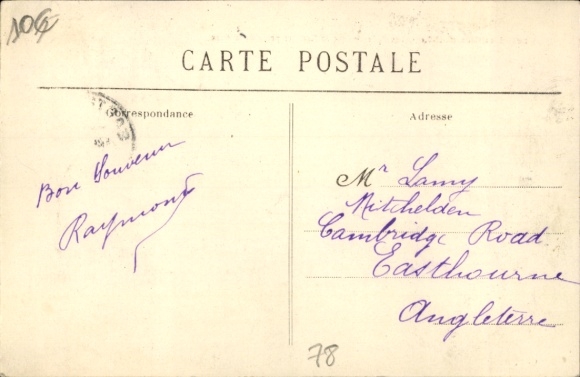 106
CARTE POSTALE
Correspondance
Adresse
Bon Souvenir
Raymond
Mr Lamy
Mitchelden
Cambridge Road
Eastbourne
Angleterre
78